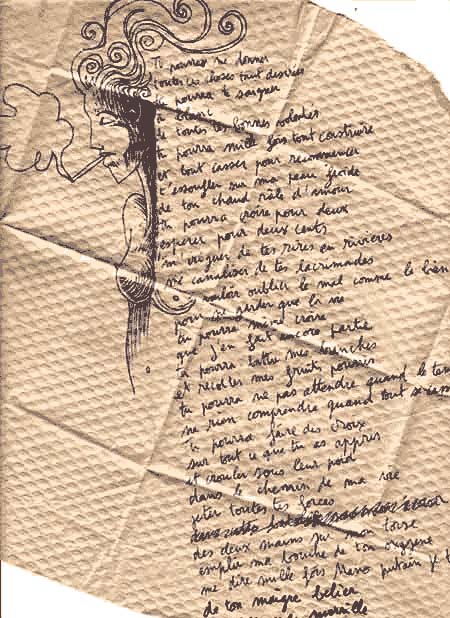 Tu pourras me donner
toutes ces choses tant désirées
tu pourra te saigner
de toutes tes bonnes volontés
tu pourra mille fois tout construire
et tout casser pour recommencer
t'essouffler sur ma peau froide
de ton chaud râle d'amour
tu pourra croire pour deux
espérer pour deux cents
m'irriguer de tes rires en rivières
me canaliser de tes lacrumades
vouloir oublier le mal comme le bien
pour ne garder que la vie
tu pourra même croire
que j'en fait encore partie
tu pourra battre mes branches
et récolter mes fruits pourris
tu pourra ne pas attendre quand le tem
ne rien comprendre quand tout
Tu pourra faire des croix
sur tout ce que tu as appris
et crouler sous leur poid
dans le chemin de ma voie
jeter toutes tes forces
des deux mains sur mon torse
emplir ma bouche de ton oxygène
me dire mille fois putain je t
de ton maigre belier